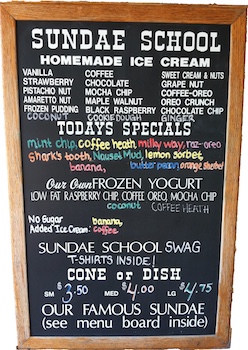 SUNDAE SCHOOL
HOMEMADE ICE CREAM
VANILLA COFFEE SWEET CREAM & NUTS
STRAWBERRY CHOCOLATE GRAPE NUT
PISTACHIO NUT MOCHA CHIP COFFEE-OREO
AMARETTO NUT MAPLE WALNUT OREO CRUNCH
FROZEN PUDDING BLACK RASPBERRY CHOCOLATE CHIP
COCONUT COOKIE DOUGH GINGER
TODAYS SPECIALS
mint chip, coffee heath, milky way, raz-oreo
shark's tooth, Nauset Mud, lemon sorbet,
banana, butter pecan, orange sherbet
Our Own FROZEN YOGURT
LOW FAT RASPBERRY CHIP, COFFEE OREO, MOCHA CHIP
coconut COFFEE HEATH
No Sugar banana,
Added Ice Cream: coffee
SUNDAE SCHOOL SWAG
T-SHIRTS INSIDE!
CONE or DISH
SM $3.50 MED $4.00 LG $4.75
OUR FAMOUS SUNDAE
(see menu board inside)